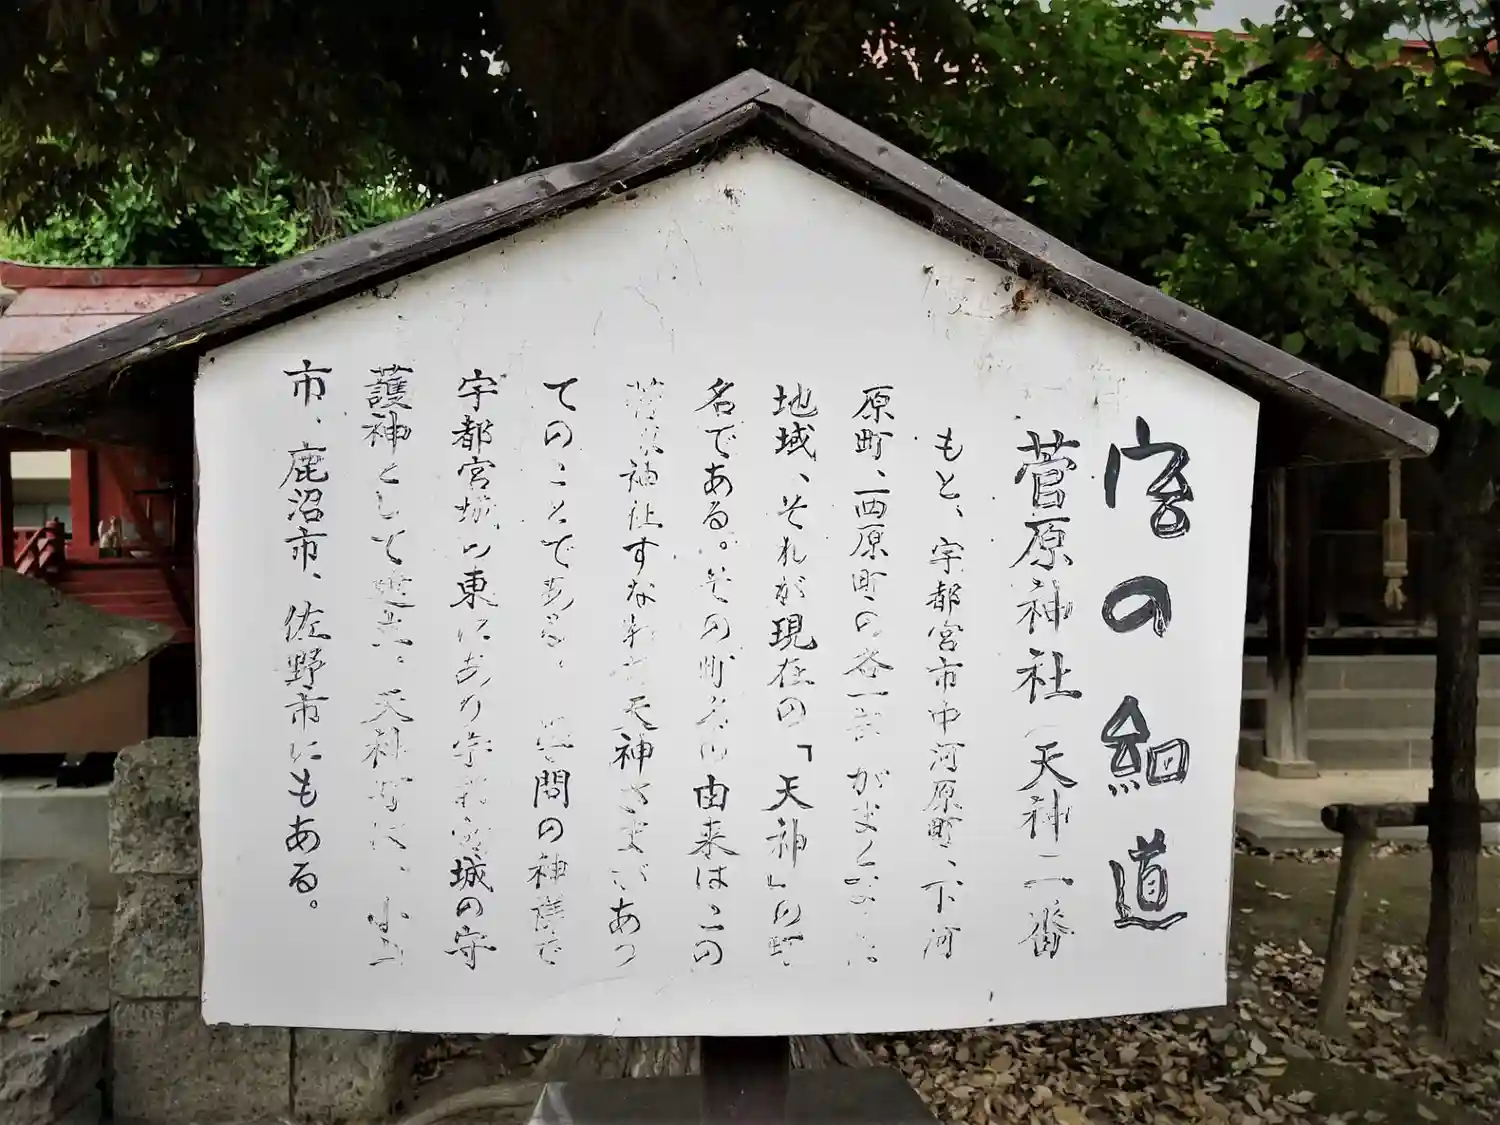 宮の細道
菅原神社(天神二番
もと、宇都宮市中河原町、下河
原町、西原町の各一部がまとまった
地域、それが現在の「天神」の町
名である。その町名の由来はこの
菅原神社すなわち天神さまがあっ
てのことである。学問の神様で
宇都宮城の東にあり宇都宮城の守
護神として
天神
小山
市、鹿沼市、佐野市にもある。